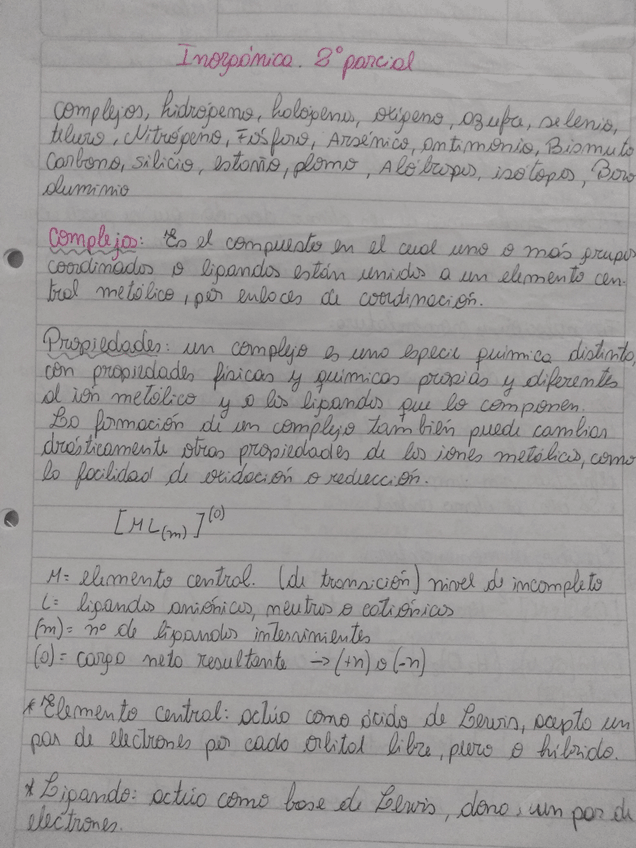 Inorgánica. 3° parcial
complejos, hidrógeno, halógeno, oxígeno, azufre, selenio,
teluro, Nitrógeno, Fósforo, Arsénico, antimonio, Bismuto
Carbono, silicio, estaño, plomo, Alótropos, isótopos, Boro
aluminio
Complejos: Es el compuesto en el cual uno o más grupos
coordinados o ligandos están unidos a un elemento cen-
tral metálico, por enlaces de coordinación.
Propiedades: un complejo es una especie química distinta,
con propiedades físicas y químicas propias y diferentes
al ión metálico y a los ligandos que lo componen.
La formación de un complejo también puede cambiar
drásticamente otras propiedades de los iones metálicos, como
la facilidad de oxidación o reducción.
[ML(m)](0)
M= elemento central. (de transición) nivel d incompleto
L= ligandos aniónicos, neutros o catiónicos
(m)= n° de ligandos intervinientes
(0)= carga neta resultante → (+n) o (-n)
*Elemento central: actúa como ácido de Lewis, acepta un
par de electrones por cada orbital libre, puro o híbrido.
*Ligando: actúa como base de Lewis, dona, un par de
electrones.